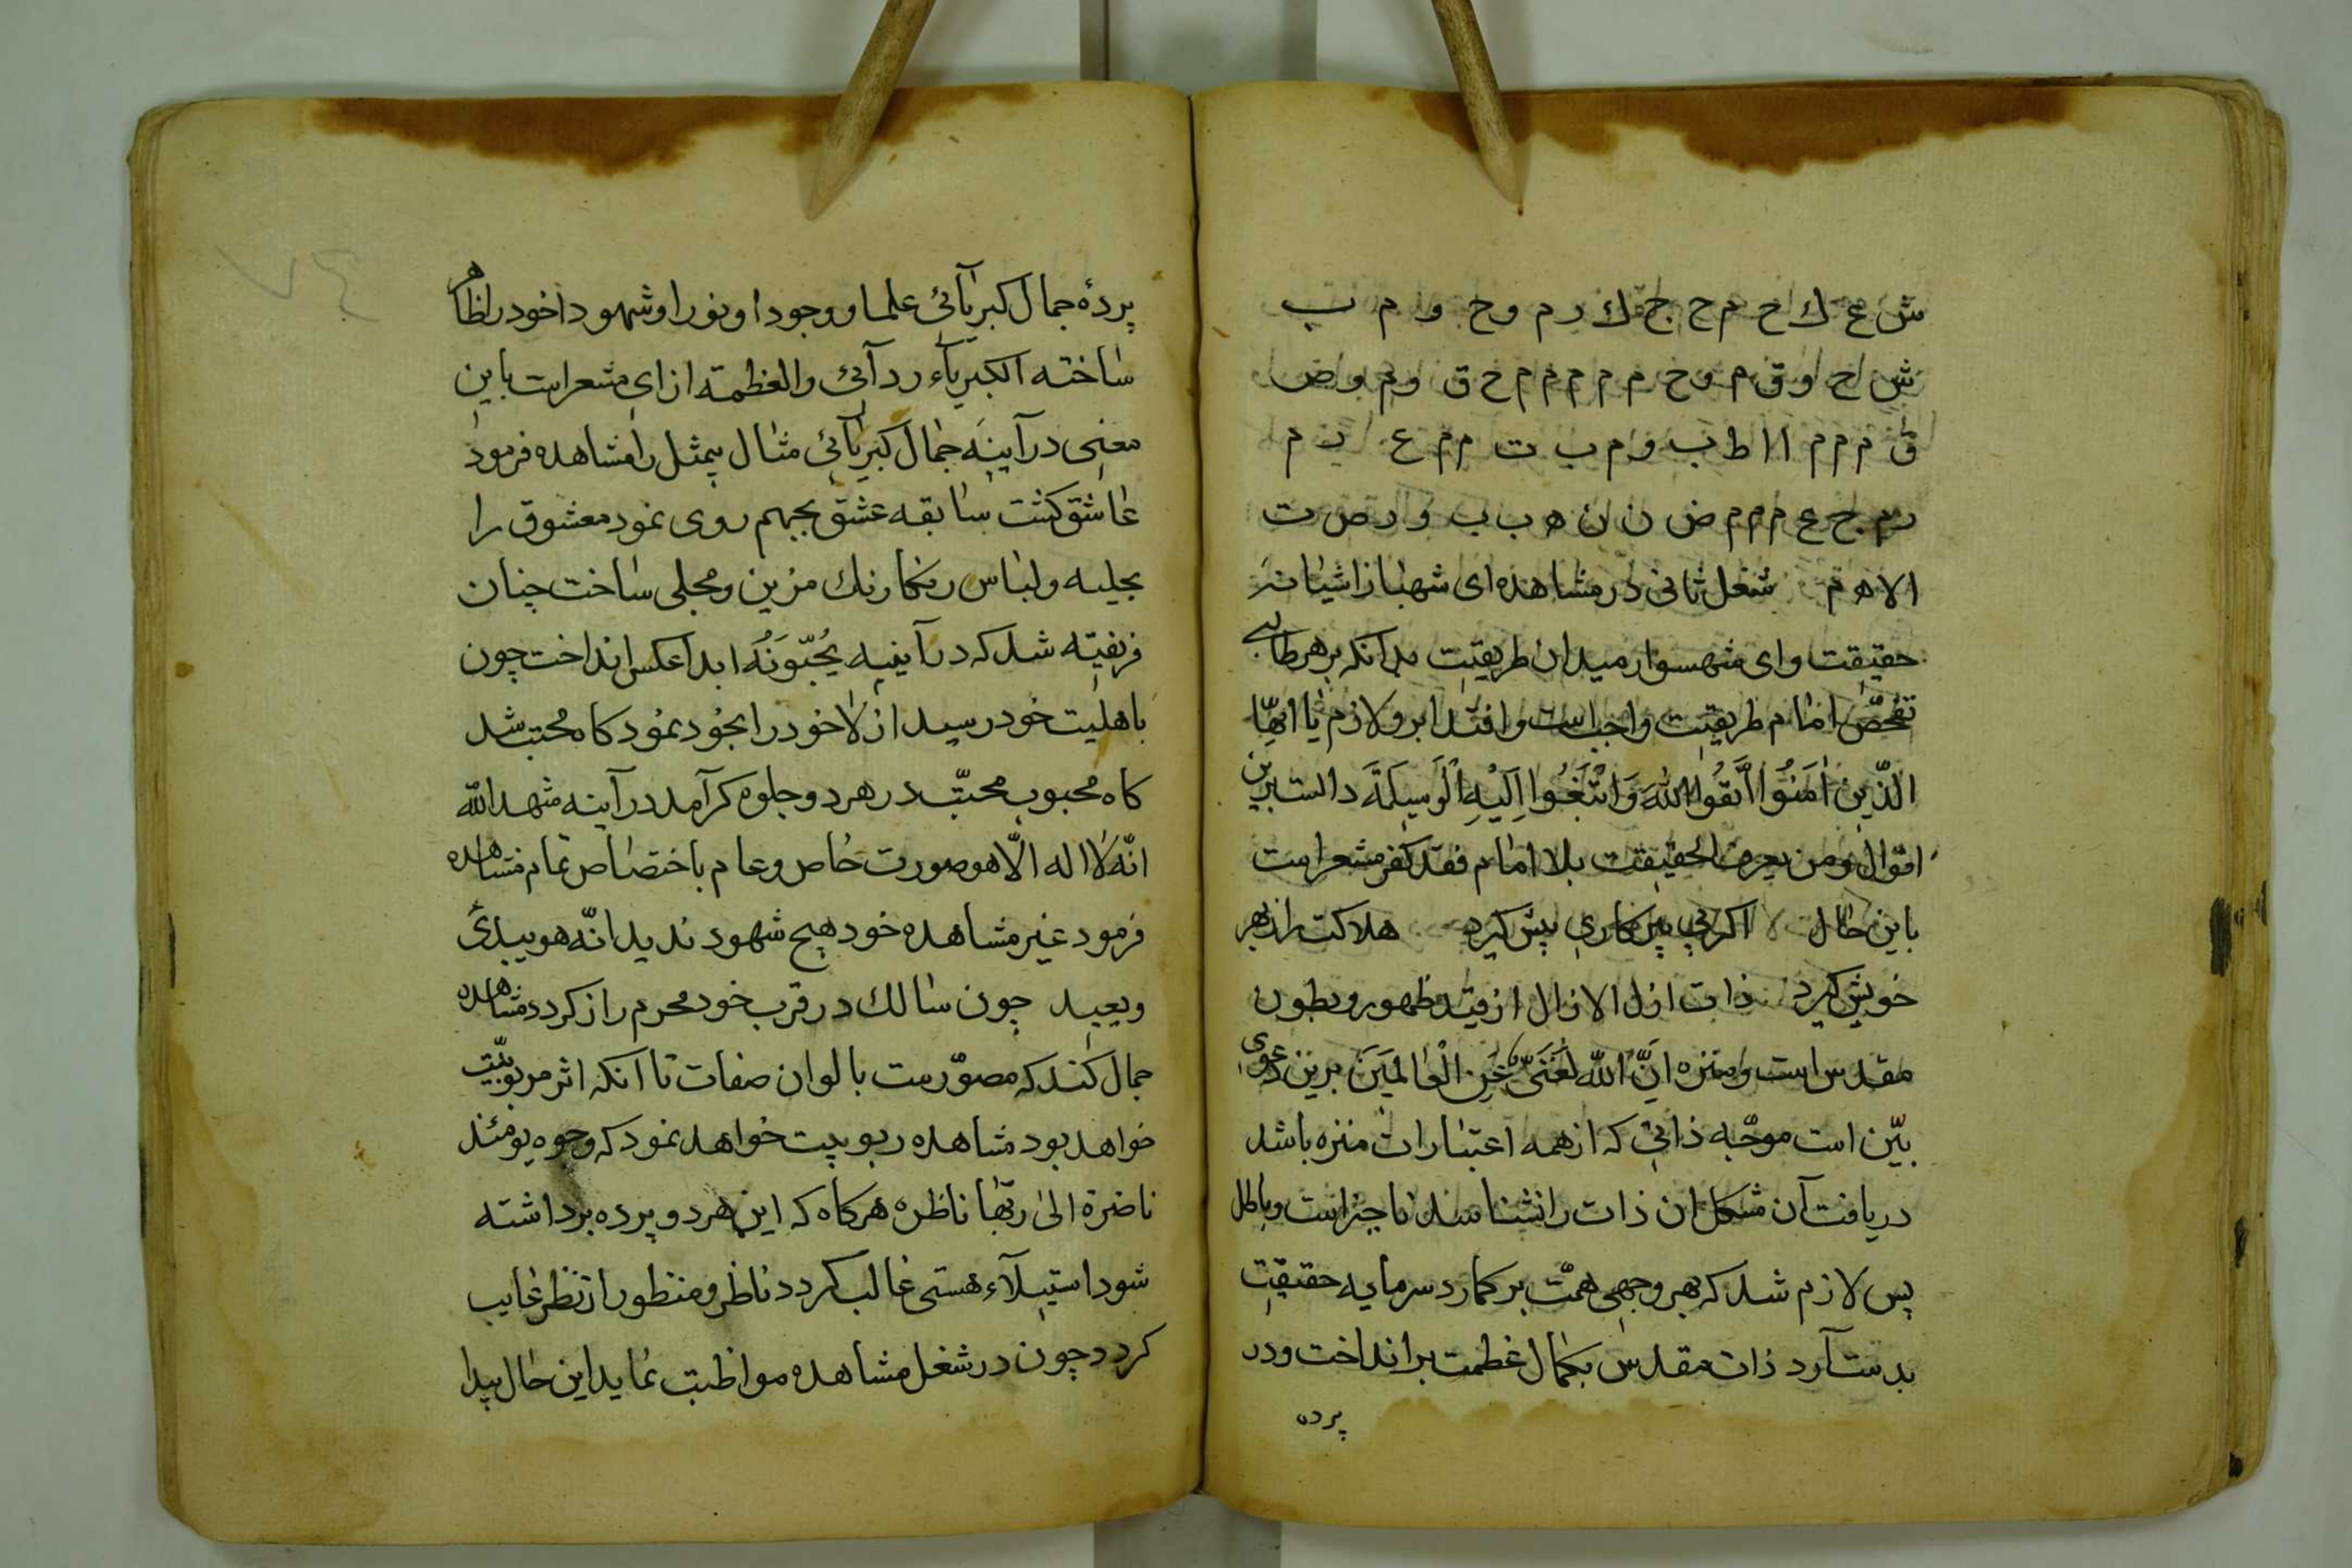 ش ع ك ح م ح ج ك ر م و ح و م ب
ش ا ح و ق م و خ م م م م م م خ ق و م و ض
ق م م م ا ا ط ب و م ب ت م م ع ب م
ر م ج ع م م م ض ن ن ه ب ب و ر ص ت
الا ه م شغل ثانی در مشاهده ای شهباز اشیانهٔ
حقیقت وای شهسوار میدان طریقت بدانکه بر هر طالبی
تفحّص امام طریقت واجب است واقتدا برو لازم یا ایّها
الّذین اٰمَنُوا اتَّقُوا اللّٰهَ وَابْتَغُوا اِلَیْهِ الْوَسیلَةَ دالست برین
اقوال ومن یعرف الحقیقت بلا امام فقد کفر مشعر است
باین حال اکر بی پیر کاری پیش کیرد هلاکت را ز بهر
خویش کیرد ذات ازل الازال از قید ظهور و بطون
مقدس است و منزه اِنَّ اللّٰه لَغَنیٌّ عَنِ الْعٰالَمینَ برین دعوی
بیّن است موجّه ذاتی که از همه اعتبارات منزه باشد
دریافت آن مشکل ان ذات را نشناسند ناچیز است و باطل
پس لازم شد که بهر وجهی همّت بر کمارد سرمایه حقیقت
بدست آرد ذات مقدس بکمال عظمت برانداخت و در
پرده
پردهٔ جمال کبریآئی علما و وجودا و نورا و شهودا خود را ظاهر
ساخته الکبریآء ردآئی والعظمة ازاری مشعر است باین
معنی در آینه جمال کبریآئی مثال بیمثل را مشاهده فرمود
عاشق کشت سابقه عشق یحبهم روی نمود معشوق را
بحلیه ولباس رنکارنك مزین و مجلی ساخت چنان
فریفته شد که در آینهٔ یُحبّونَهُ ابدا عکس انداخت چون
باهلیت خود رسید ازلا خود را بخود نمود کاه محبّ شد
کاه محبوب محبّت در هر دو جلوه کر آمد در آینه شهد اللّٰه
انّه لا اله الّا هو صورت خاص و عام باختصاص تمام مشاهده
فرمود غیر مشاهده خود هیچ شهود ندید انّه هو یبدئ
ویعید چون سالك در قرب خود محرم راز کردد مشاهده
جمال کند که مصوّرست بالوان صفات تا آنکه اثر مربوبیّت
خواهد بود مشاهده ربوبیت خواهد نمود که وجوه یومئذ
ناضرة الیٰ ربّها ناظره هرکاه که این هر دو پرده برداشته
شود استیلآء هستی غالب کردد ناظر و منظور از نظر غایب
کردد چون در شغل مشاهده مواظبت نماید این حال پیدا